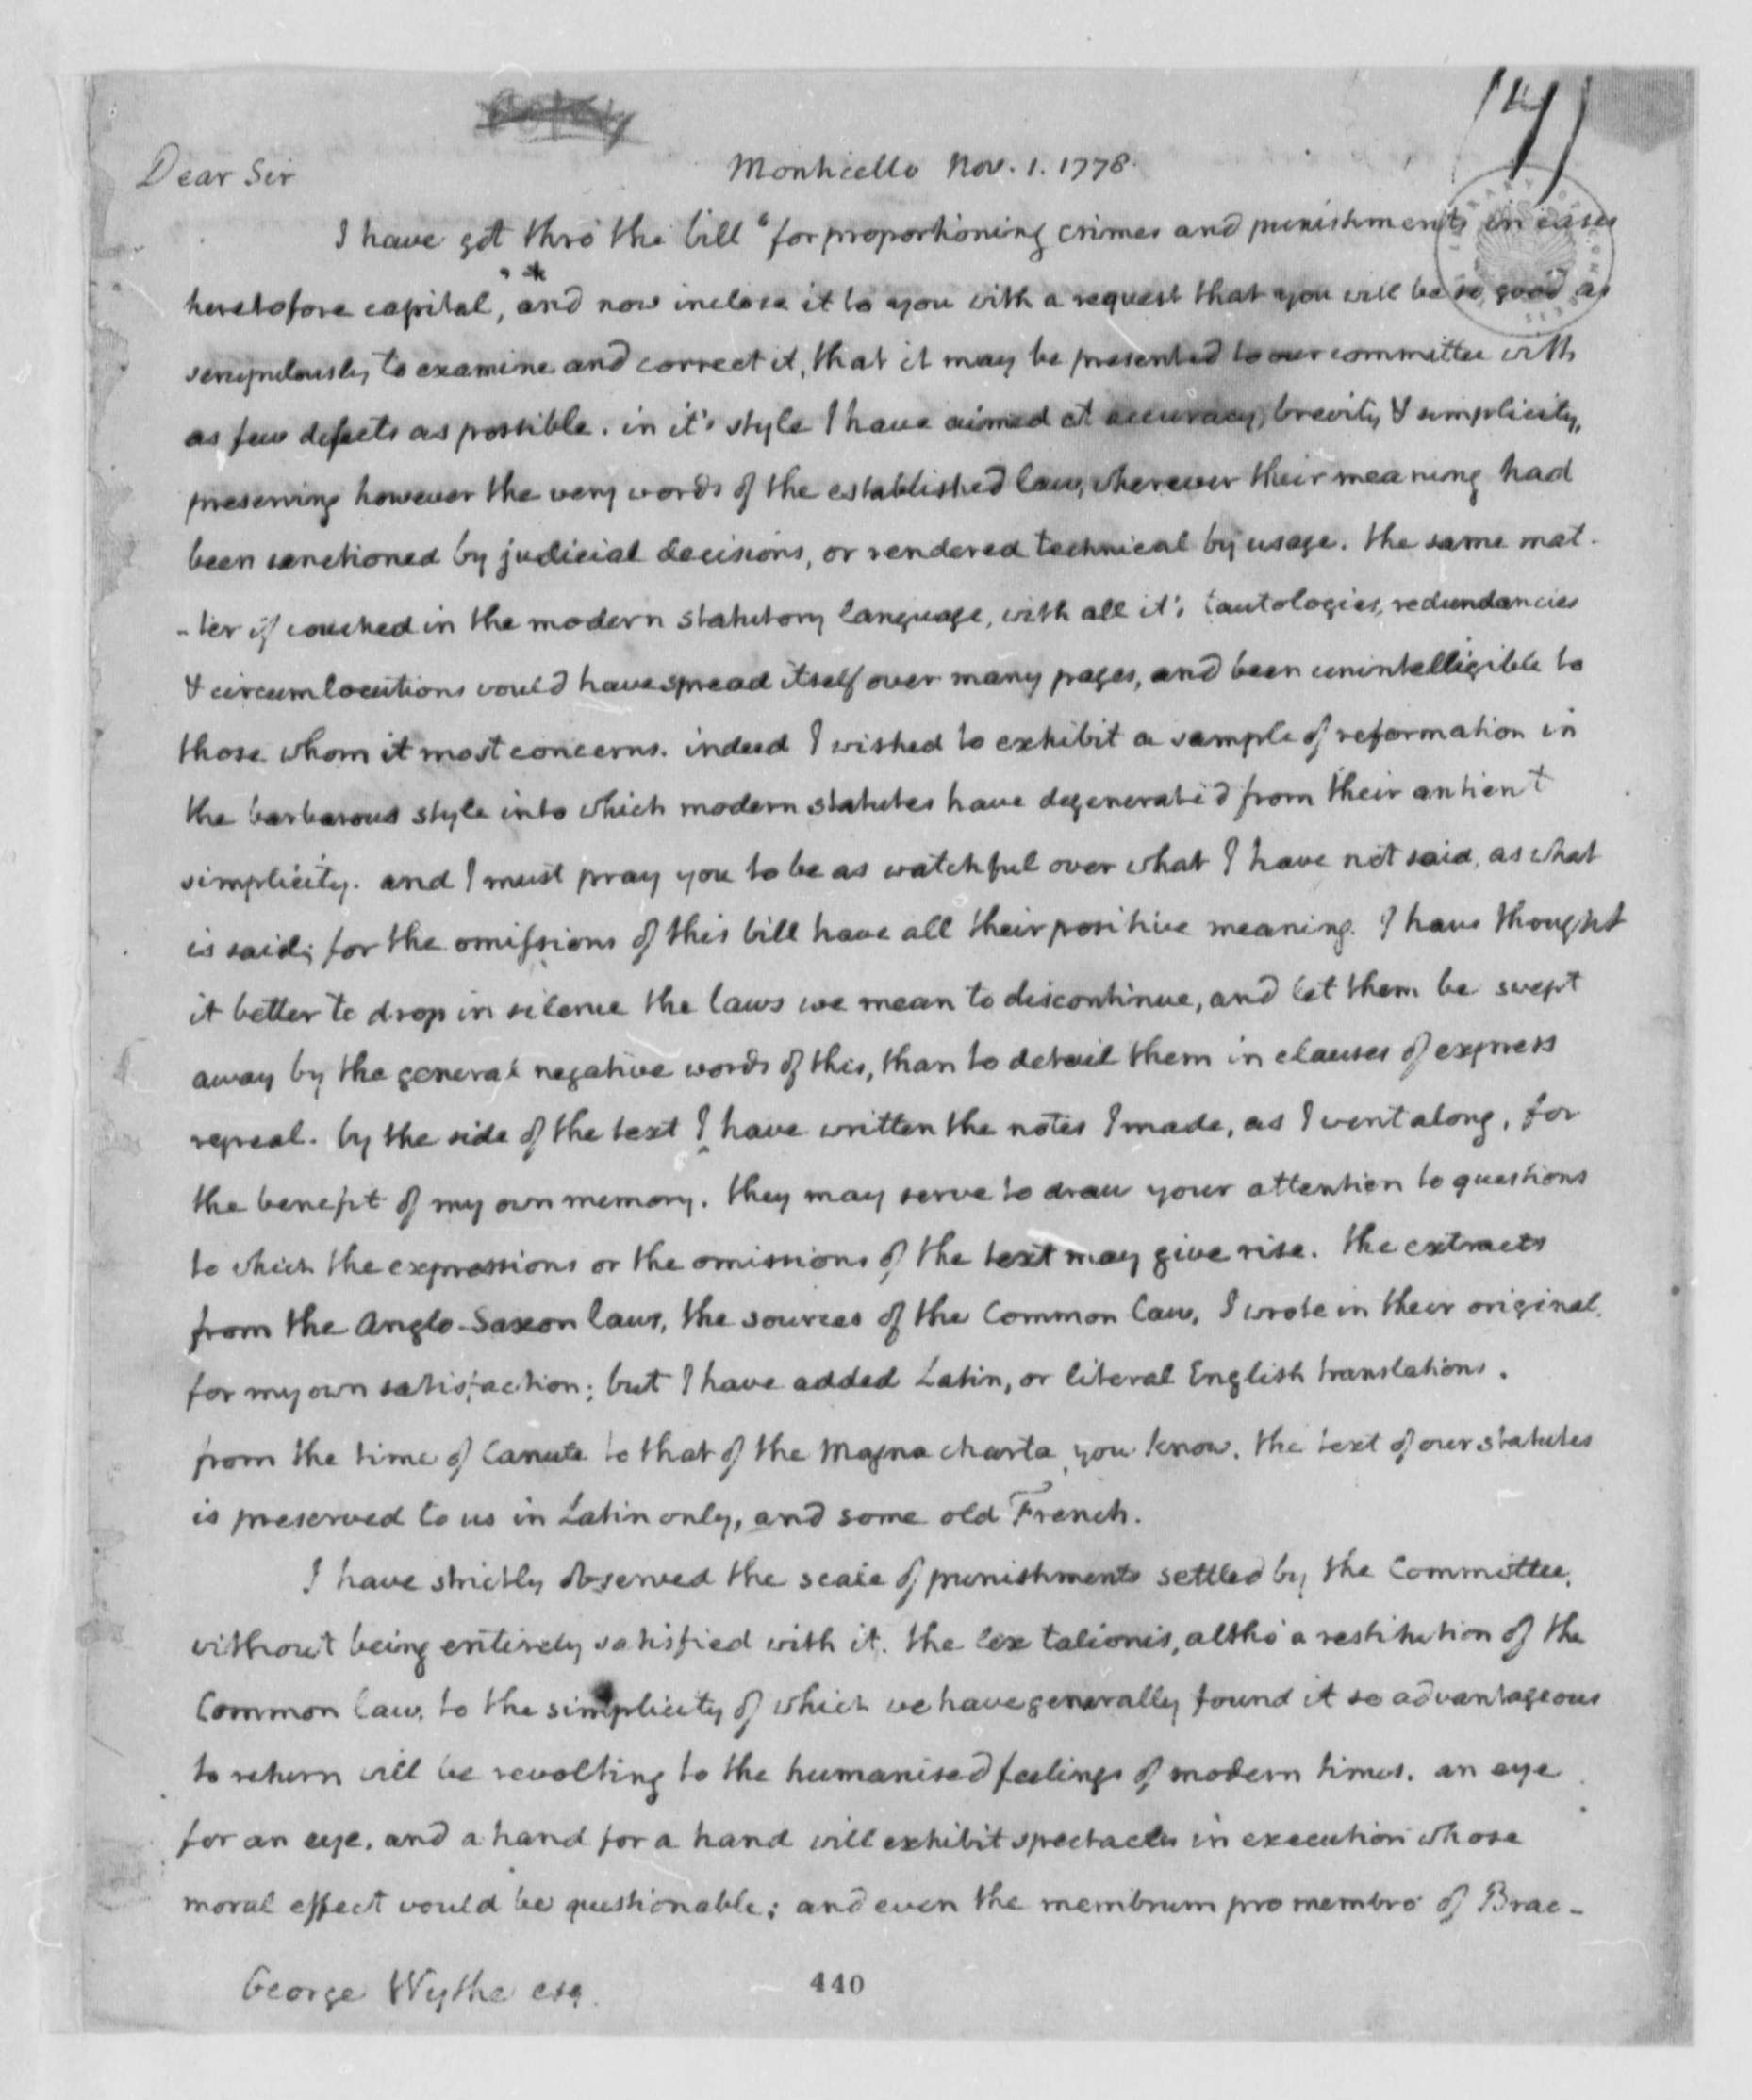 Dear Sir
Monticello Nov. 1. 1778.
I have got thro' the bill "for proportioning crimes and punishments in cases
heretofore capital,"* and now inclose it to you with a request that you will be so good as
scrupulously to examine and correct it, that it may be presented to our committee with
as few defects as possible. in it's style I have aimed at accuracy, brevity & simplicity,
preserving however the very words of the established law, wherever their meaning had
been sanctioned by judicial decisions, or rendered technical by usage. the same mat-
-ter if couched in the modern statutory language, with all it's tautologies, redundancies
& circumlocutions would have spread itself over many pages, and been unintelligible to
those whom it most concerns. indeed I wished to exhibit a sample of reformation in
the barbarous style into which modern statutes have degenerated from their antient
simplicity. and I must pray you to be as watchful over what I have not said, as what
is said; for the omissions of this bill have all their positive meaning. I have thought
it better to drop in silence the laws we mean to discontinue, and let them be swept
away by the general negative words of this, than to detail them in clauses of express
repeal. by the side of the text I have written the notes I made, as I went along, for
the benefit of my own memory. they may serve to draw your attention to questions
to which the expressions or the omissions of the text may give rise. the extracts
from the Anglo-Saxon laws, the sources of the Common law, I wrote in their original,
for my own satisfaction; but I have added Latin, or literal English translations.
from the time of Canute to that of the Magna charta, you know, the text of our statutes
is preserved to us in Latin only, and some old French.
I have strictly observed the scale of punishments settled by the Committee,
without being entirely satisfied with it. the lex talionis, altho' a restitution of the
Common law, to the simplicity of which we have generally found it so advantageous
to return will be revolting to the humanised feelings of modern times. an eye
for an eye, and a hand for a hand will exhibit spectacles in execution whose
moral effect would be questionable; and even the membrum pro membro of Brac-
George Wythe esq.
440